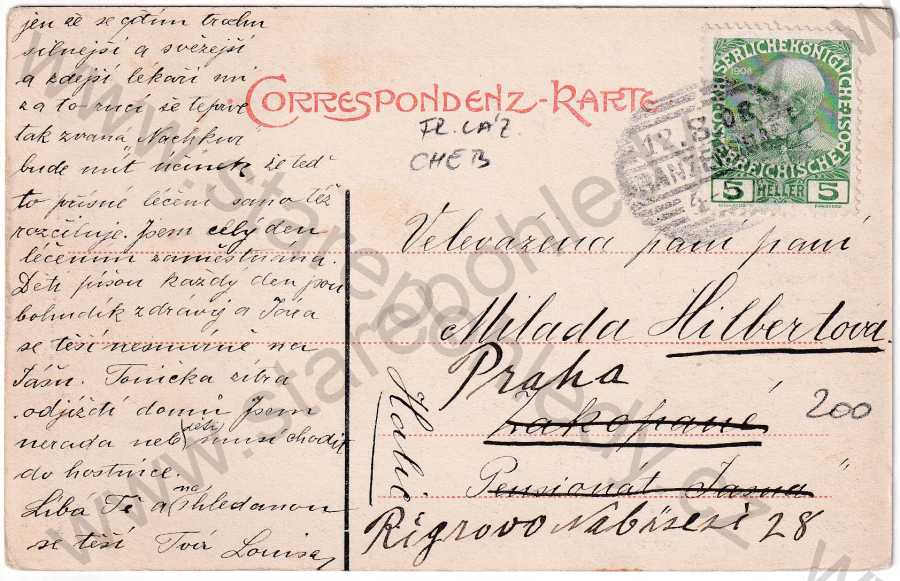 jen až se cítím trochu
silnější a svěžejší
a zdejší lékaři mi
za to ručí že teprve
tak zvaná "Nachkur"
bude mít účinek že teď
to přísné léčení samo též
rozčiluje. Jsem celý den
léčením zaměstnána.
Děti píšou každý den jsou
bohudík zdrávy a
se těší nesmírně na
Tonička zítra
odjíždí domů Jsem
nerada neb (děti) musí chodit
do hostince.
Líbá Tě a (na) shledanou
se těší Tvá Louisa
CORRESPONDENZ-KARTE
FR. LÁZ.
CHEB
SERLICHEKÖNIGLICHE
1908
REICHISCHE
5 HELLER 5
12.8.
Velevážená paní paní
Milada Hilbertová
Praha
Zakopané
Pensionát Jasna"
Halič
Rigrovo Nábřeží 28
200
www.starepohledy.cz